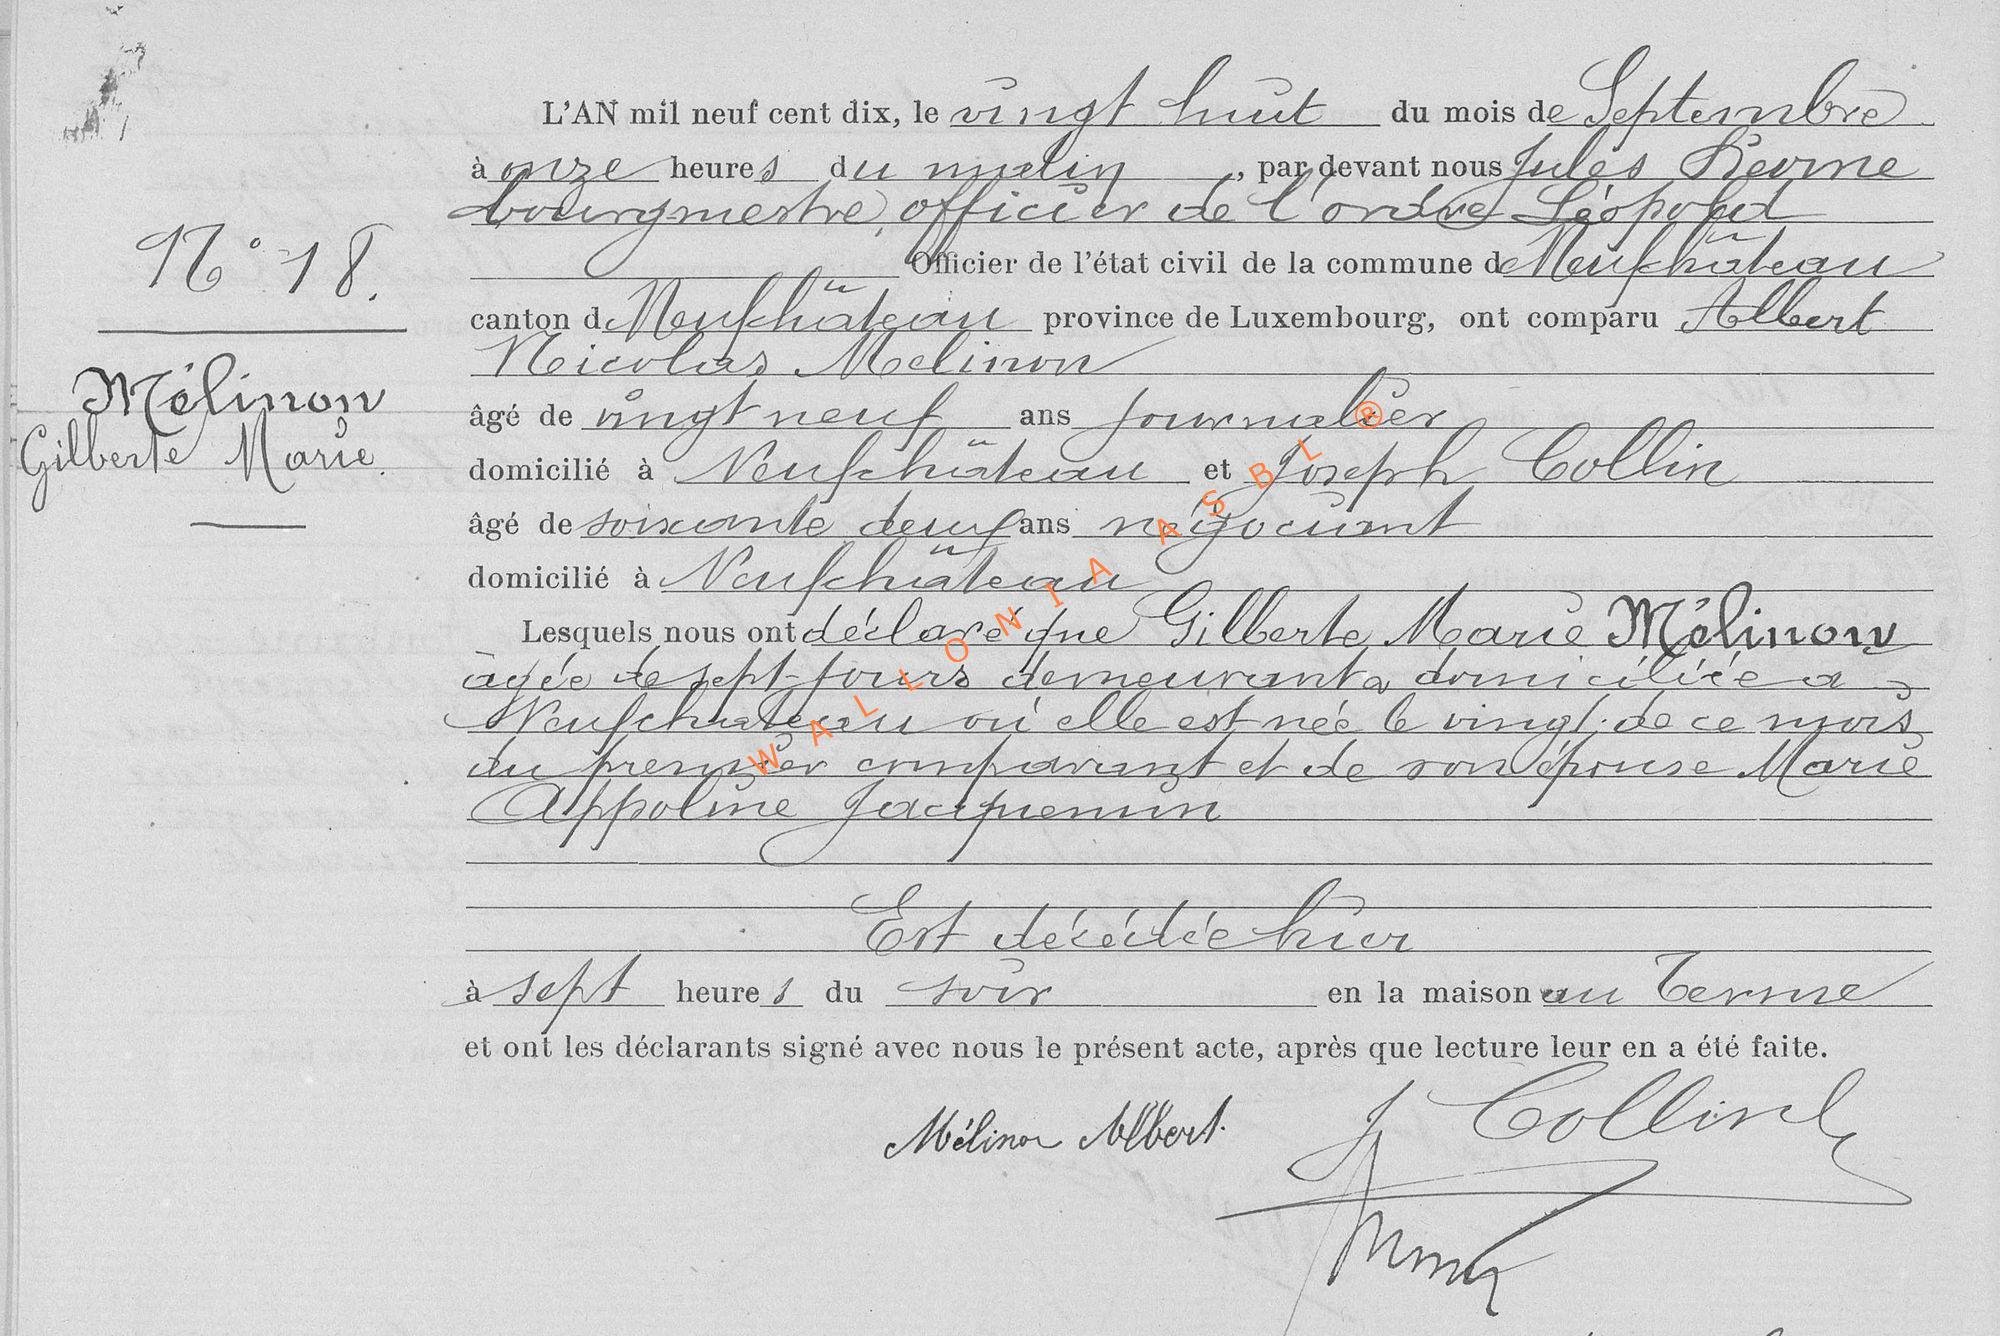 L'AN mil neuf cent dix, le vingt huit du mois de Septembre
à onze heures du matin, par devant nous Jules
bourgmestre, officier de l'ordre Léopold
N° 18.
Officier de l'état civil de la commune de Neufchâteau
canton de Neufchâteau province de Luxembourg, ont comparu Albert
Nicolas Melinon
Mélinon
Gilberte Marie.
âgé de vingt neuf ans journalier
domicilié à Neufchâteau et Joseph Collin
âgé de soixante deux ans négociant
domicilié à Neufchâteau
Lesquels nous ont déclaré que Gilberte Marie Mélinon
âgée de sept jours demeurant domiciliée a
Neufchateau où elle est née le vingt de ce mois
du premier comparant et de son épouse Marie
Appoline Jacquemin
Est décédée hier
à sept heures du soir en la maison au Terme
et ont les déclarants signé avec nous le présent acte, après que lecture leur en a été faite.
Mélinon Albert.
J Collin
WALLONIA ASBL ®